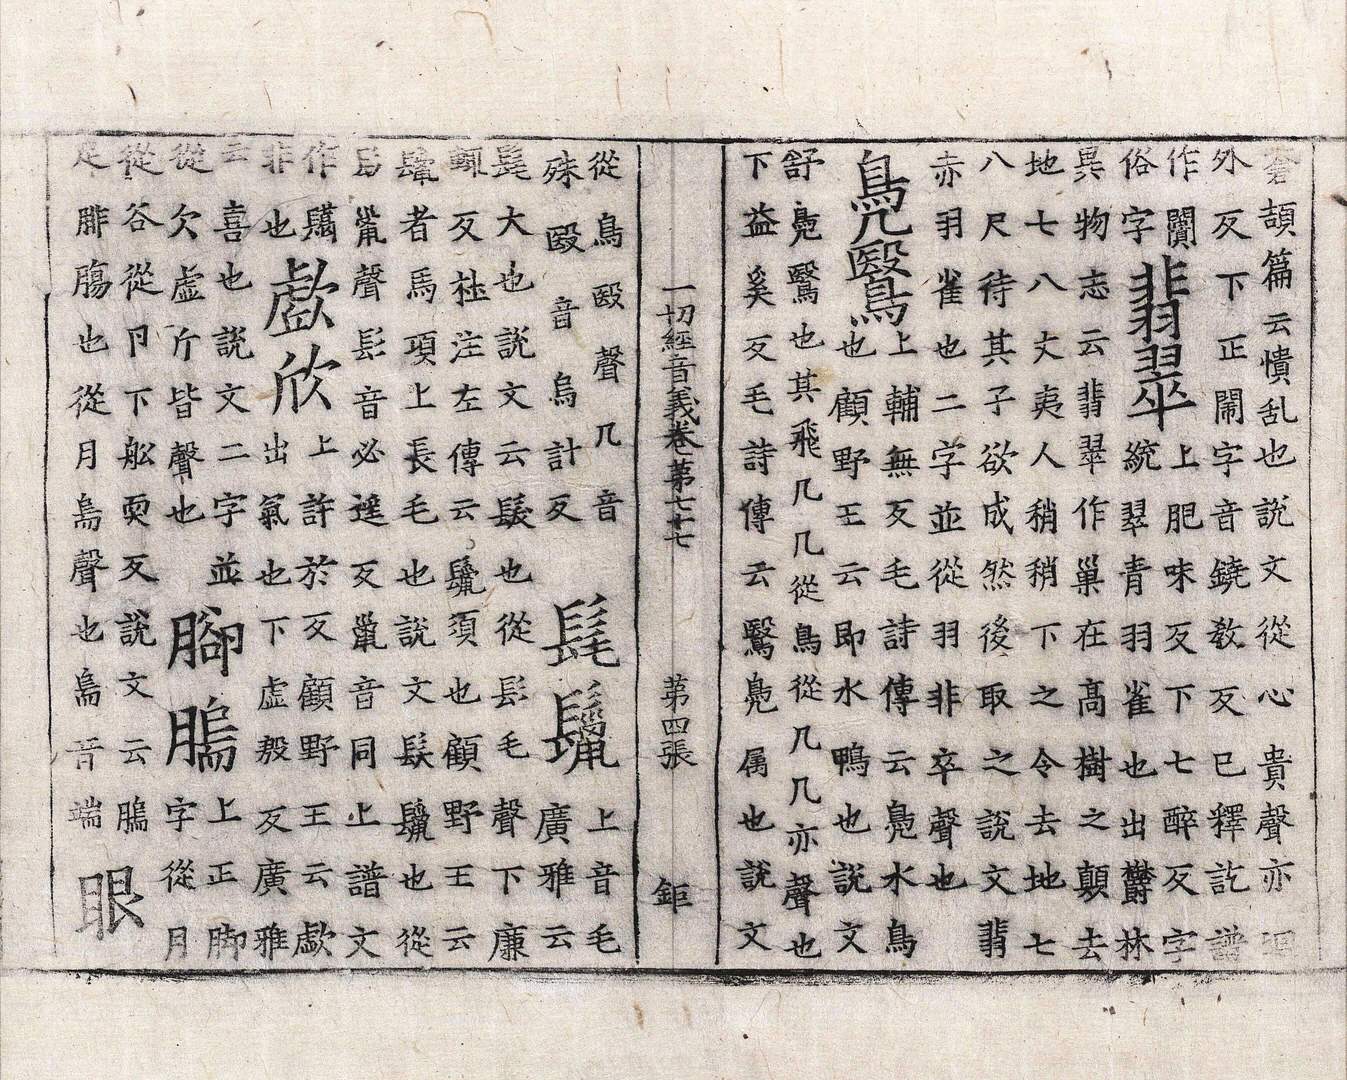 蒼頡篇云憒乱也說文從心貴聲亦
外反下正閙字音鐃教反已釋訖譜
作闠翡翠上肥味反下七醉反字
俗字統翠青羽雀也出欝林
異物志云翡翠作巢在髙樹之顛去
地七八丈夷人稍稍下之令去地七
八尺待其子欲成然後取之說文翡
赤羽雀也二字並從羽非卒聲也
鳧鷖上輔無反毛詩傳云鳧水鳥
也顧野王云即水鴨也說文
舒鳧鷖也其飛几几從鳥從几几亦聲也
下益奚反毛詩傳云鷖鳧属也說文
一切經音義卷第七十七 第四張 鉅
從鳥殹聲几音
殊殹音烏計反 髦鬣上音毛
廣雅云
髦大也說文云髮也從髟毛聲下廉
輒反杜注左傳云鬣須也顧野王云
鬣者馬項上長毛也說文髮鬣也從
髟巤聲髟音必遥反巤音同上譜文
作𩯭歔欣上許於反顧野王云歔
非也出氣也下虛殷反廣雅
云喜也說文二字並
從欠虛斤皆聲也 腳腨上正脚
字從月
從谷從卩下船耎反說文云腨
足腓膓也從月耑聲也耑音端 眼